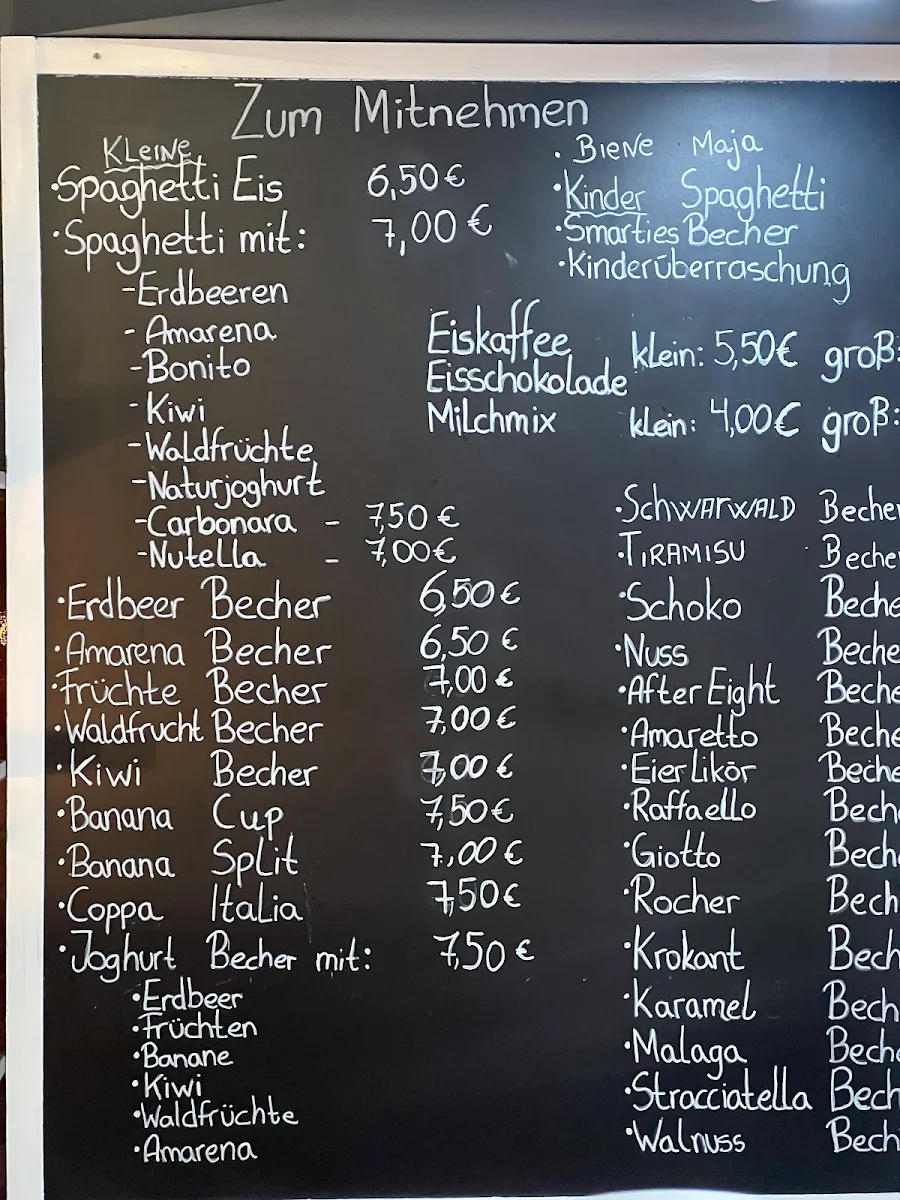 Zum Mitnehmen
Kleine
·Spaghetti Eis 6,50€
·Spaghetti mit: 7,00€
-Erdbeeren
-Amarena
-Bonito
-Kiwi
-Waldfrüchte
-Naturjoghurt
-Carbonara - 7,50€
-Nutella - 7,00€
·Erdbeer Becher 6,50€
·Amarena Becher 6,50€
·Früchte Becher 7,00€
·Waldfrucht Becher 7,00€
·Kiwi Becher 7,00€
·Banana Cup 7,50€
·Banana Split 7,00€
·Coppa Italia 7,50€
·Joghurt Becher mit: 7,50€
·Erdbeer
·Früchten
·Banane
·Kiwi
·Waldfrüchte
·Amarena
·Biene Maja
·Kinder Spaghetti
·Smarties Becher
·Kinderüberraschung
Eiskaffee
Eisschokolade klein: 5,50€ groß:
Milchmix klein: 4,00€ groß:
·SCHWARWALD Becher
·TIRAMISU Beche
·Schoko Beche
·Nuss Beche
·After Eight Beche
·Amaretto Beche
·Eier Likör Beche
·Raffaello Bech
·Giotto Bech
·Rocher Bech
·Krokant Bech
·Karamel Bech
·Malaga Bech
·Stracciatella Bech
·Walnuss Bech